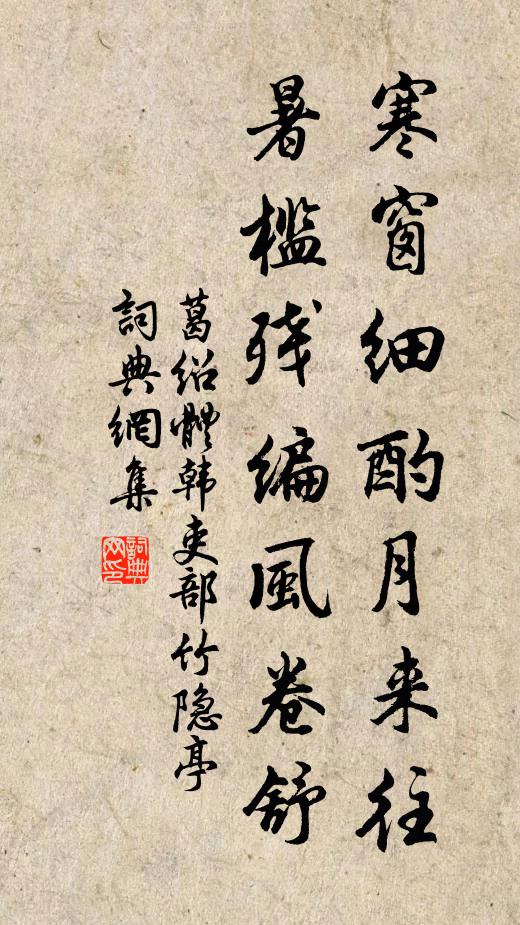 寒窗细酌月来往
暑槛残编風卷舒
葛绍體韩吏部竹隐亭
詞典網集
詞典网印